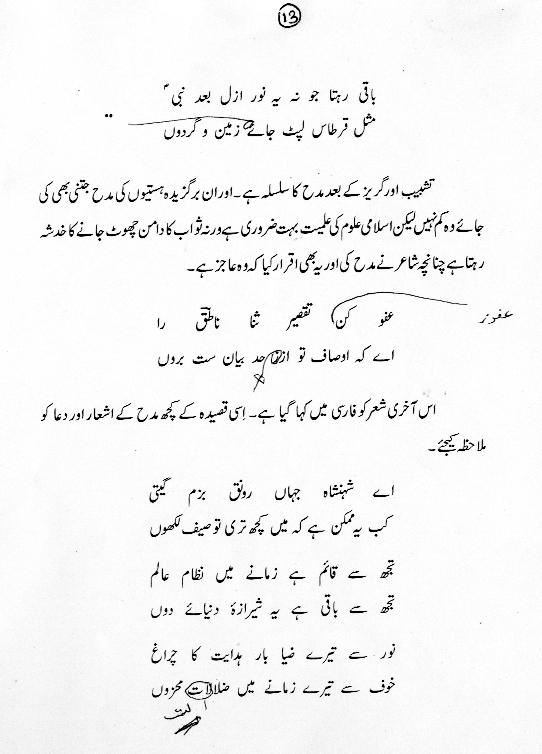 13
باقی رہتا جو نہ یہ نور ازل بعد نبیؐ
مثل قرطاس لپٹ جاتے زمین و گردوں
تشبیب اور گریز کے بعد مدح کا سلسلہ ہے۔ اور ان برگزیدہ ہستیوں کی مدح جتنی بھی کی
جائے وہ کم نہیں لیکن اسلامی علوم کی علمیت بہت ضروری ہے ورنہ ثواب کا دامن چھوٹ جانے کا خدشہ
رہتا ہے چنانچہ شاعر نے مدح کی اور یہ بھی اقرار کیا کہ وہ عاجز ہے۔
عفو کن تقصیر ثنا ناطقؔ را
اے کہ اوصاف تو از حد بیان ست بروں
اس آخری شعر کو فارسی میں کہا گیا ہے۔ اِسی قصیدہ کے کچھ مدح کے اشعار اور دعا کو
ملاحظہ کیجئے۔
اے شہنشاہ جہاں رونق بزم گیتی
کب یہ ممکن ہے کہ میں کچھ تری توصیف لکھوں
تجھ سے قائم ہے زمانے میں نظام عالم
تجھ سے باقی ہے یہ شیرازۂ دنیائے دوں
نور سے تیرے ضیا بار ہدایت کا چراغ
خوف سے تیرے زمانے میں ضلالات محزوں